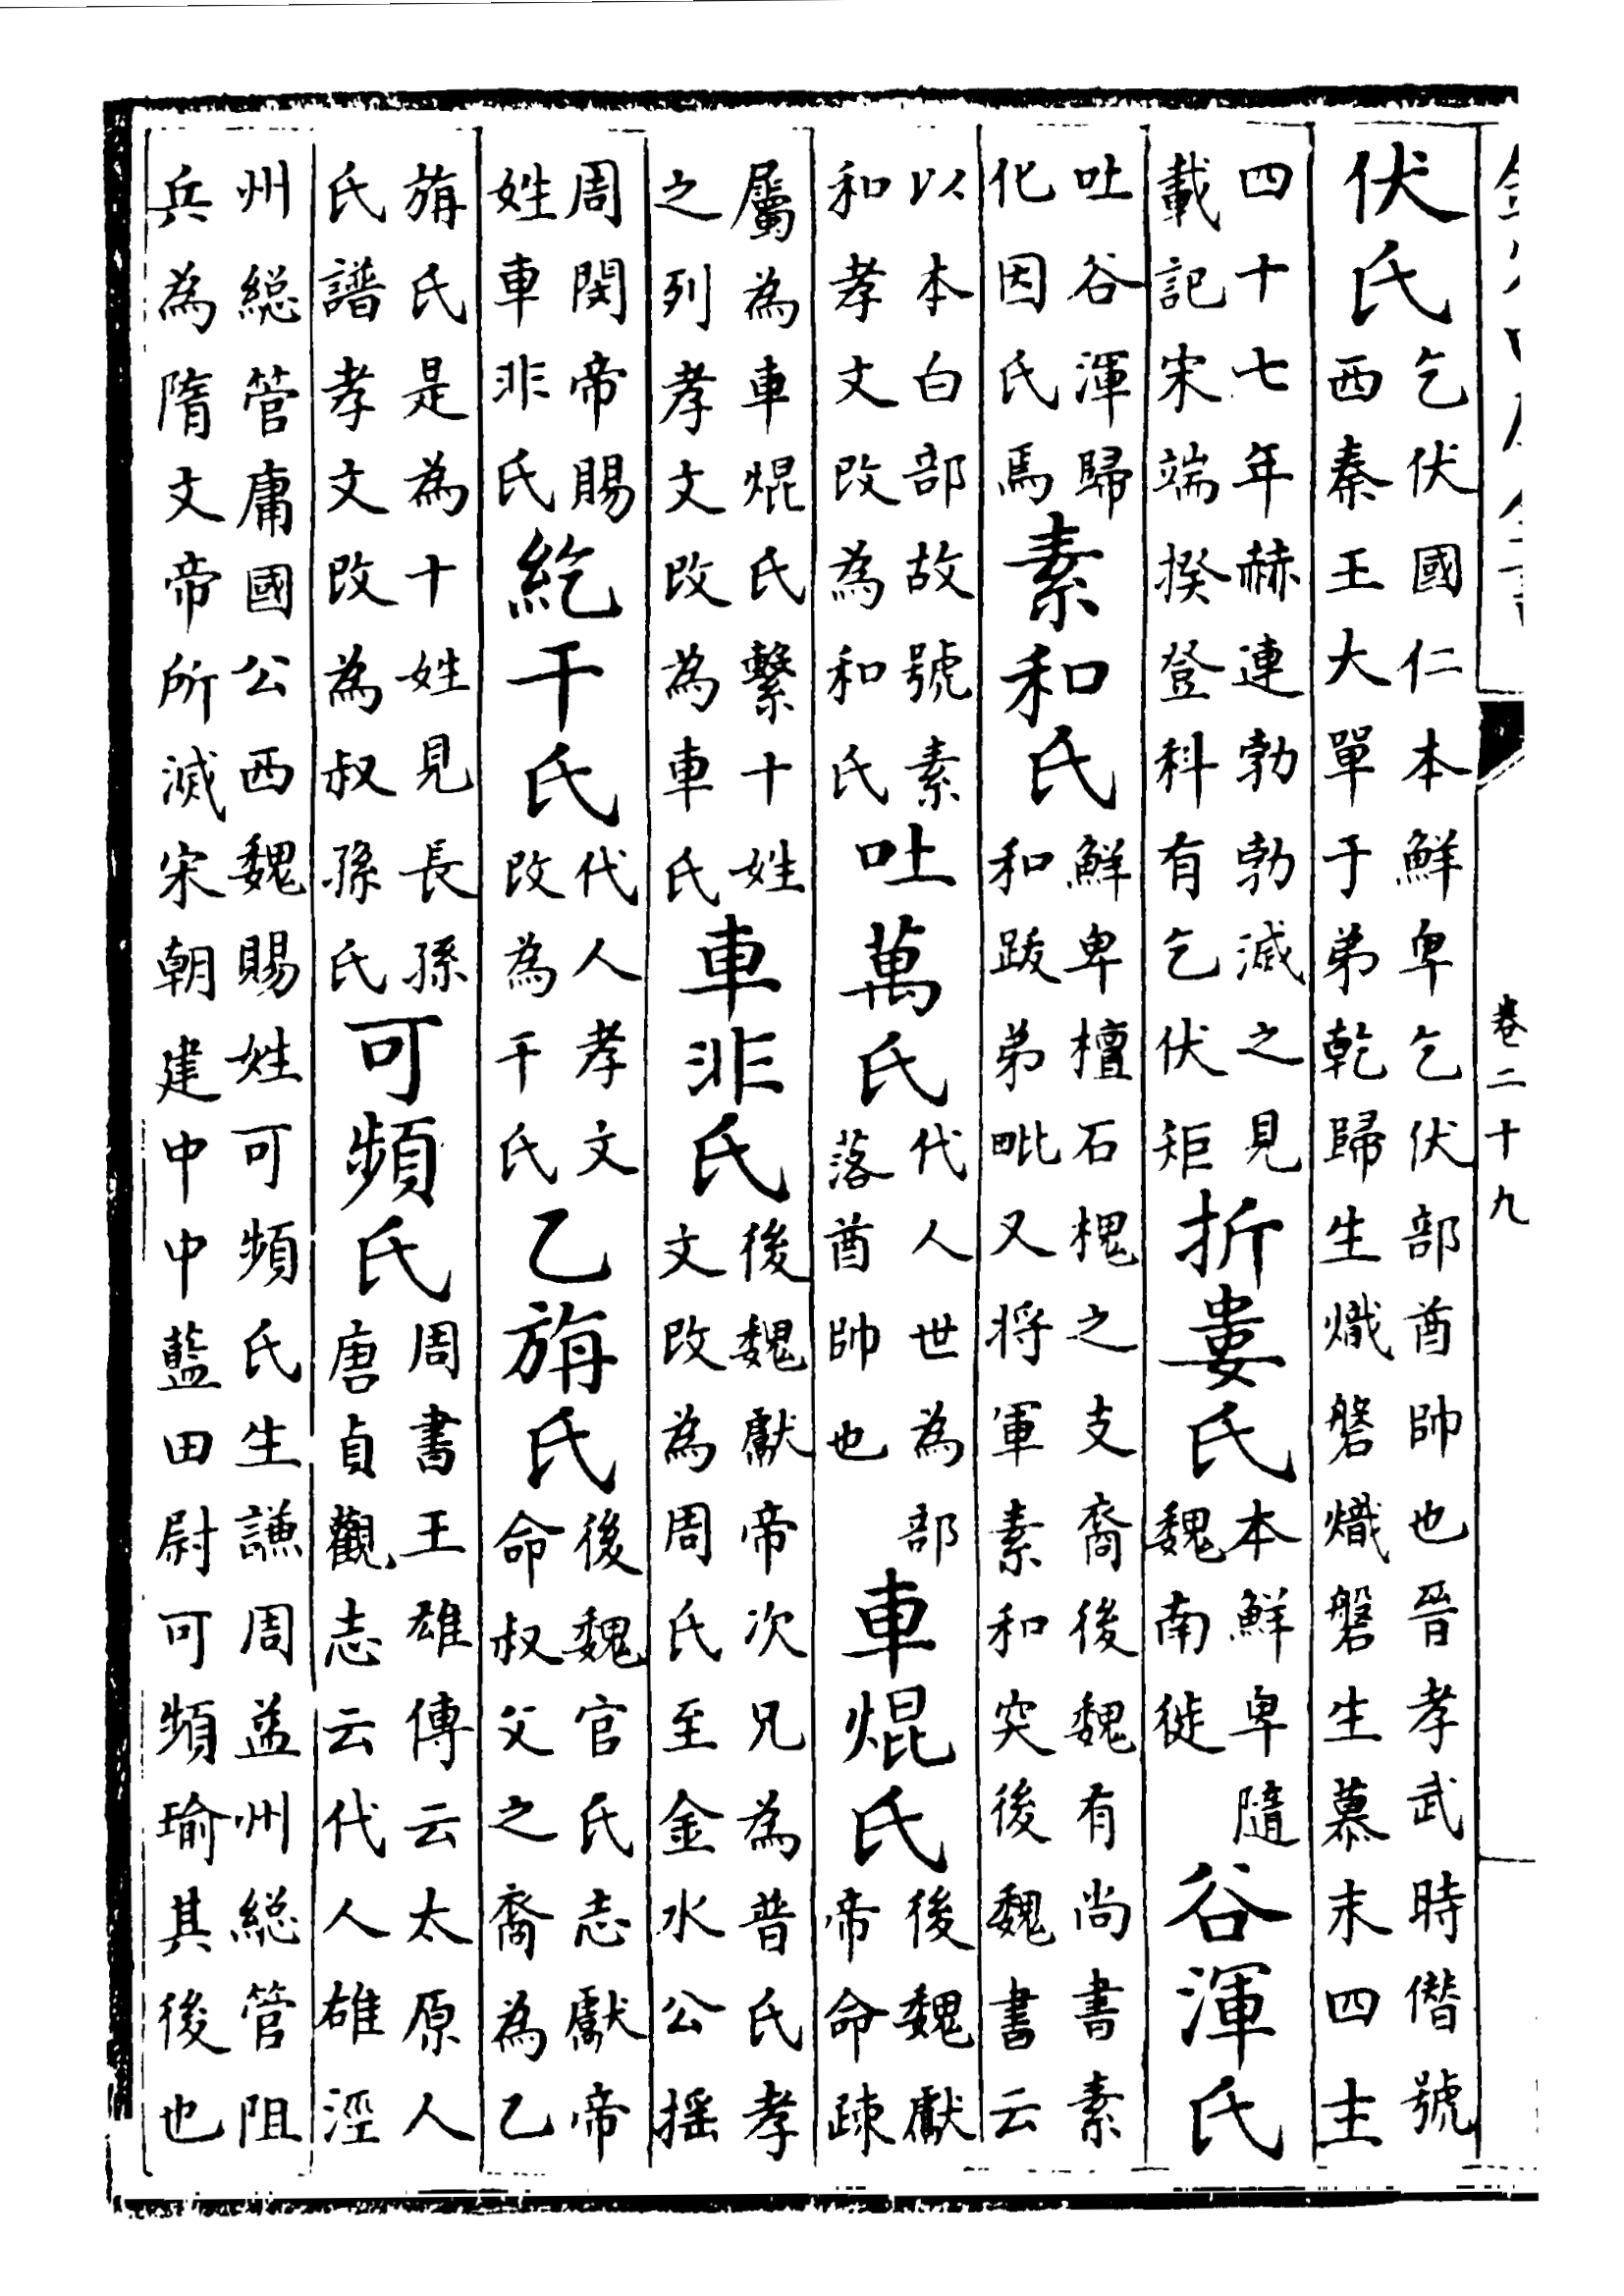 卷二十九
伏氏乞伏國仁本鮮卑乞伏部酋帥也晉孝武時僭號西秦王大單于弟乾歸生熾磐熾磐生慕末四主
四十七年赫連勃勃滅之見載記宋端揆登科有乞伏矩折婁氏本鮮卑隨魏南徙谷渾氏
吐谷渾歸化因氏焉素和氏鮮卑檀石槐之支裔後魏有尚書素和跋弟毗又将軍素和突後魏書云
以本白部故號素和孝文改為和氏吐萬氏代人世為部落酋帥也車焜氏後魏獻帝命疎
屬為車焜氏繫十姓之列孝文改為車氏車非氏後魏獻帝次兄為普氏孝文改為周氏至金水公揺
周閔帝賜姓車非氏紇干氏代人孝文改為干氏乙旃氏後魏官氏志獻帝命叔父之裔為乙
旃氏是為十姓見長孫氏譜孝文改為叔孫氏可頻氏周書王雄傳云太原人唐貞觀志云代人雄涇
州総管庸國公西魏賜姓可頻氏生謙周益州総管阻兵為隋文帝所滅宋朝建中中藍田尉可頻瑜其後也